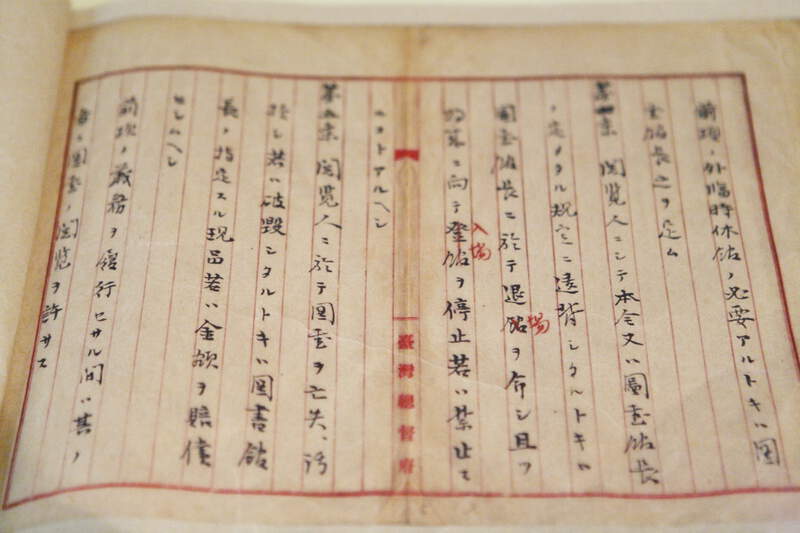 前項ノ外臨時休館ノ必要アルトキハ図
書館長之ヲ定ム
第四条 閲覧人ニシテ本令又ハ圖書館長
ノ定メタル規定ニ違背シタルトキハ
図書館長ニ於テ退館ヲ命シ且ツ
場
将来ニ向テ登館ヲ停止若ハ禁止ス
入場
ルコトアルヘシ
臺灣總督府
第五条 閲覧人ニ於テ図書ヲ亡失、汚
損シ若ハ破毀シタルトキハ図書館
長ノ指定スル現品若ハ金額ヲ賠償
セシムヘシ
前項ノ義務ヲ履行セサル間ハ其ノ
者ニ図書ノ閲覧ヲ許サス